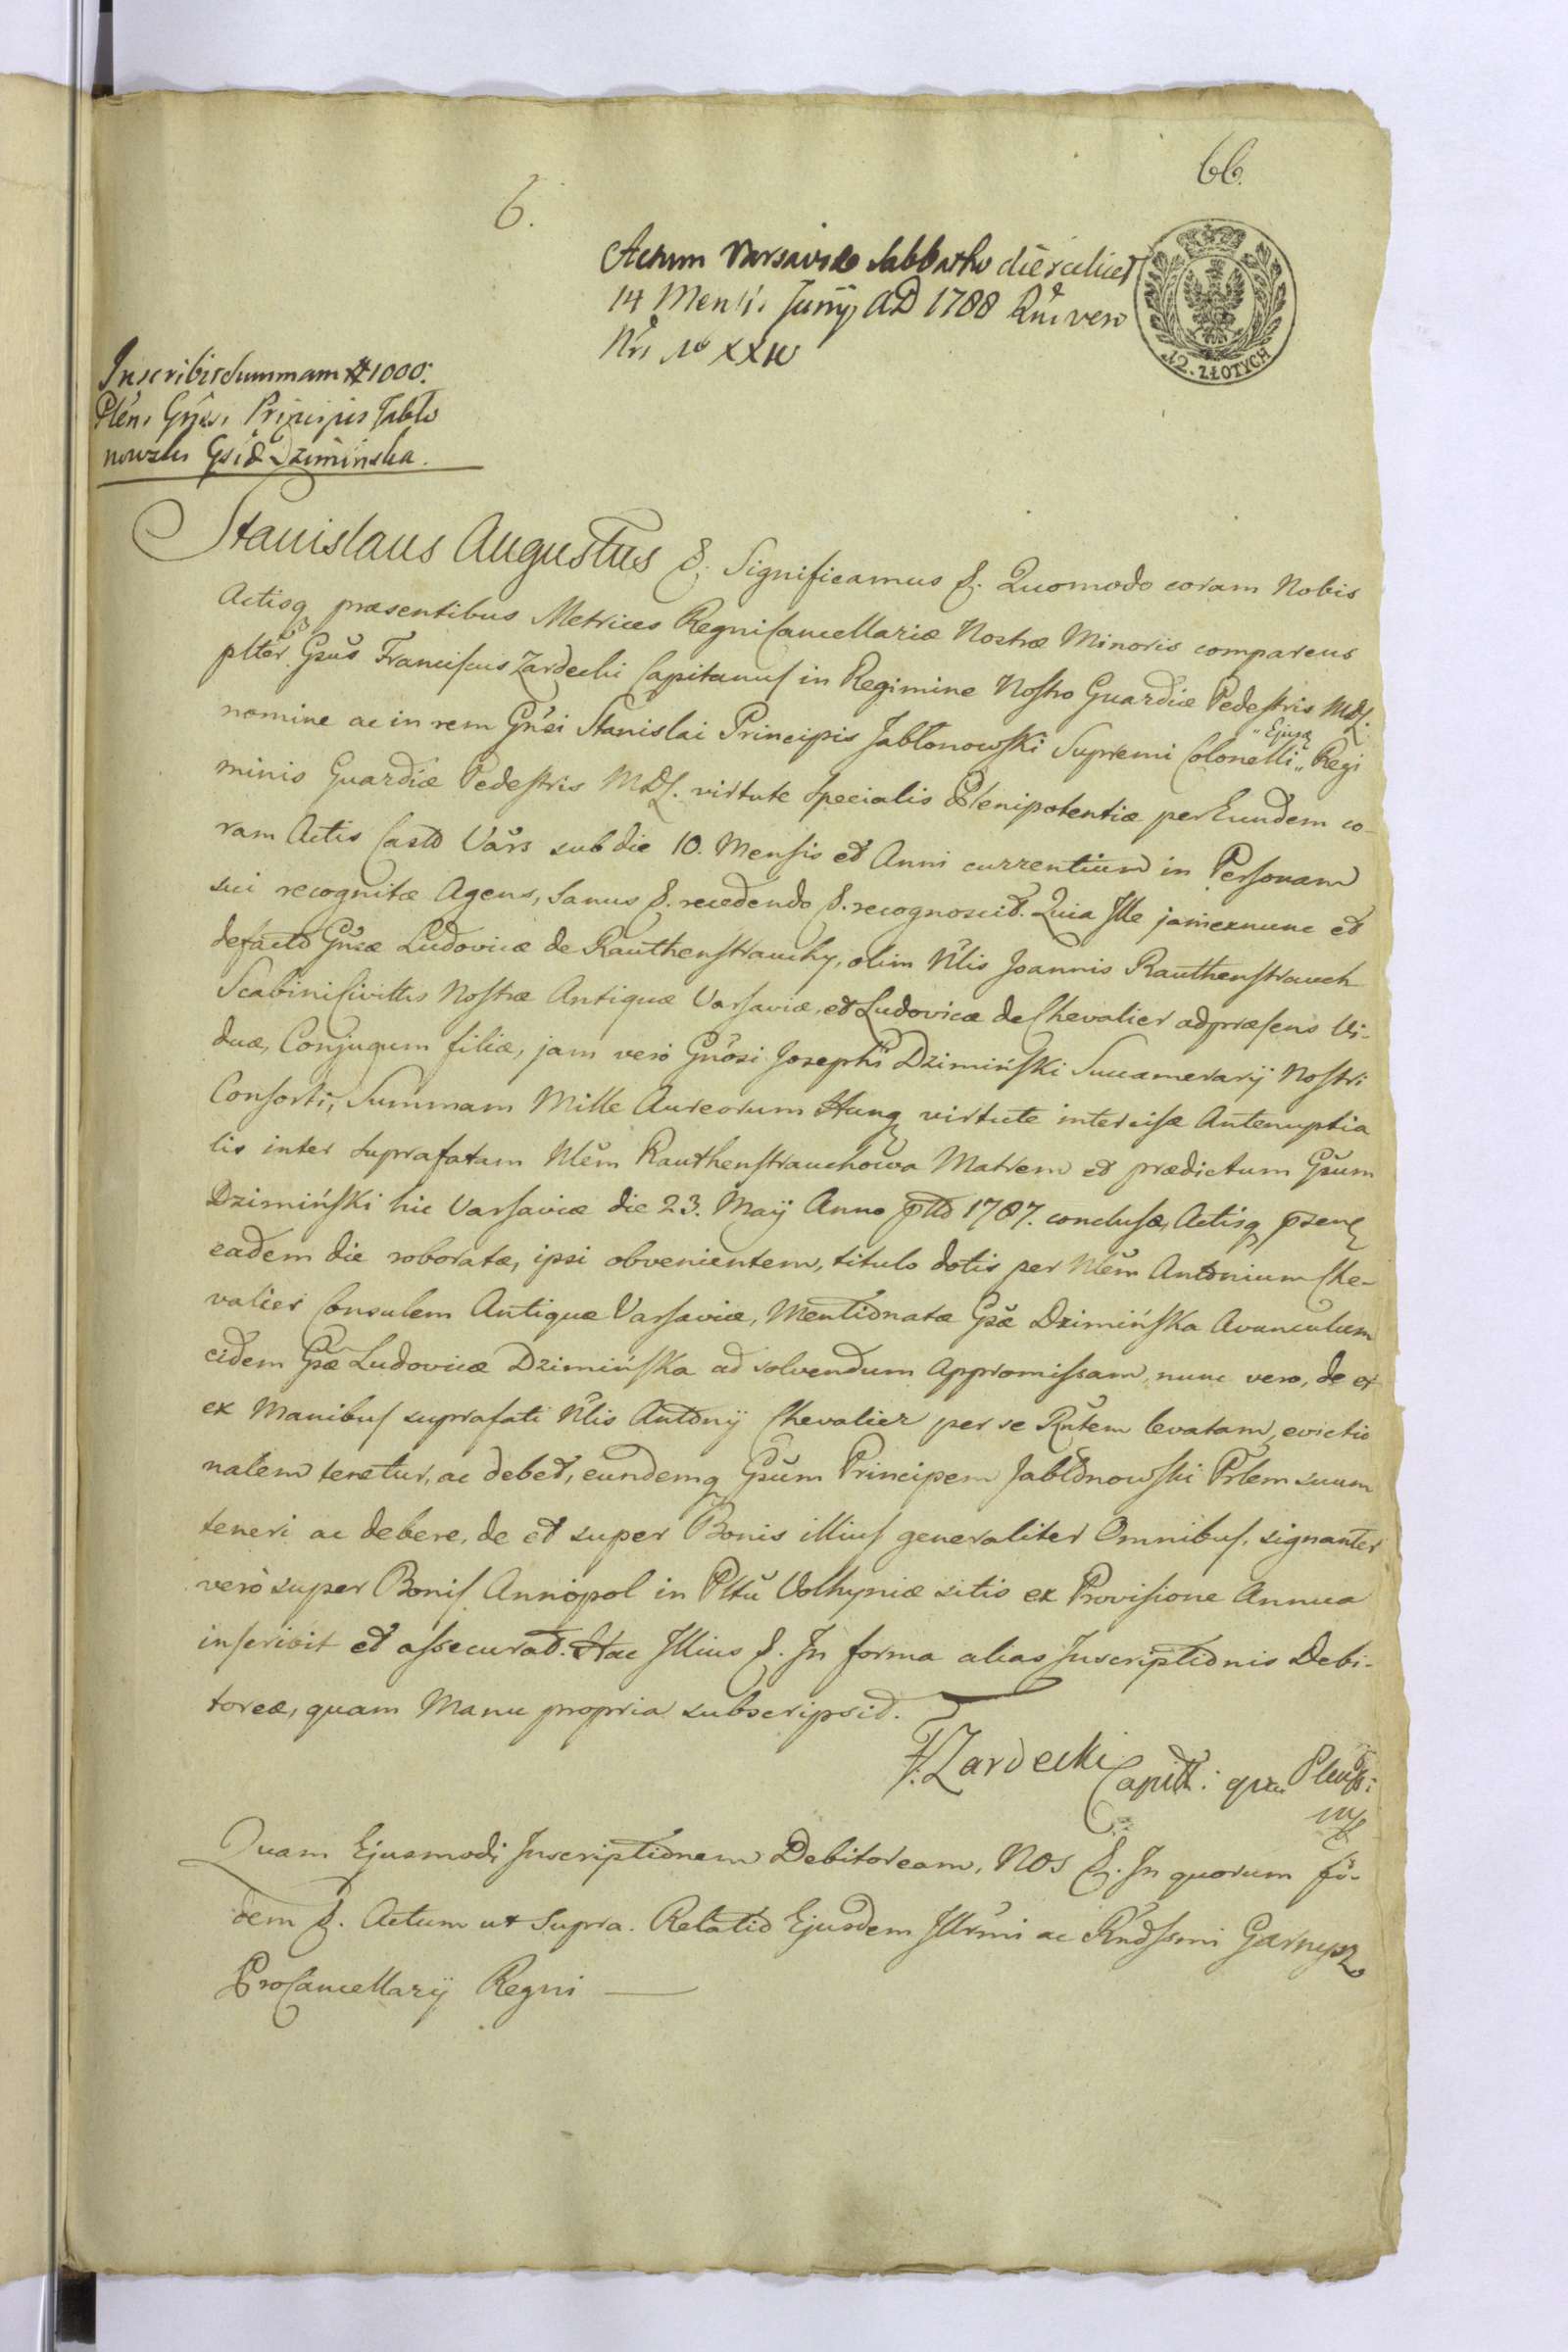 66.
6.
Actum Varsaviæ Sabbatho die scilicet
14 Mensis Junij AD 1788 Rñi vero
Nri Nō XXIV
12. ZŁOTYCH
Inscribit summam # 1000.
Plen. Gñsi Principis Jabło
nowski Gsi Dzimińska.
Stanislaus Augustus &. Significamus &. Quomodo coram Nobis
Actisq præsentibus Metrices Regni Cancellariæ Nostræ Minoris comparens
plter Gsus Franciscus Zardecki Capitanus in Regimine Nostro Guardiæ Pedestris MDL.
nomine ac in rem Gñsi Stanislai Principis Jabłonowski Supremi Colonelli " Ejusq " Regi
minis Guardiæ Pedestris MDL. virtute specialis Plenipotentiæ per Eundem co-
ram Actis Castr Vars sub die 10. Mensis et Anni currentium in Personam
sui recognitæ Agens, sanus &. recedendo &. recognoscit. Quia Ille jam exnunc et
defacto Gñsæ Ludovicæ de Rauthenstrauchy, olim Nlis Joannis Rauthenstrauch
Scabini Civittis Nostræ Antiquæ Varsaviæ, et Ludovicæ de Chevalier adpræsens Vi-
duæ, Conjugum filiæ, jam verò Gñosi Josephi Dzimiński Succamerarij Nostri
Consorti, Summam Mille Aureorum Hung virtute intercisæ Antenuptia
lis inter suprafatam Nlem Rauthenstrauchowa Matrem et prædictum Gsum
Dzimiński hic Varsaviæ die 23. Maij Anno pttō 1787. conclusæ, Actisq psen
eadem die roboratæ, ipsi obvenientem, titulo dotis per Nlem Antonium Che-
valier Consulem Antiquæ Varsaviæ, Mentionatæ Gsæ Dzimińska Avunculum
eidem Gsæ Ludovicæ Dzimińska ad solvendum appromissam, nunc vero, de et
ex Manibus suprafati Nlis Antonij Chevalier per se Rntem levatam, evictio
nalem tenetur, ac debet, eundemq Gsum Principem Jabłonowski Prlem suum
teneri ac debere, de et super Bonis illius generaliter Omnibus, signanter
verò super Bonis Annopol in Pltu Volhyniæ sitis ex Provisione Annua
inscribit et assecurat. Hac Illius &. In forma alias Inscriptionis Debi-
toreæ, quam Manu propria subscripsit.
F. Zardecki Capitt: qua Plenps:
mp
Quam Ejusmodi Inscriptionem Debitoream, Nos &. In quorum fi-
dem &. Actum ut Supra. Relatio Ejusdem Illrmi ac Rndssmi Garnysz
ProCancellarij Regni